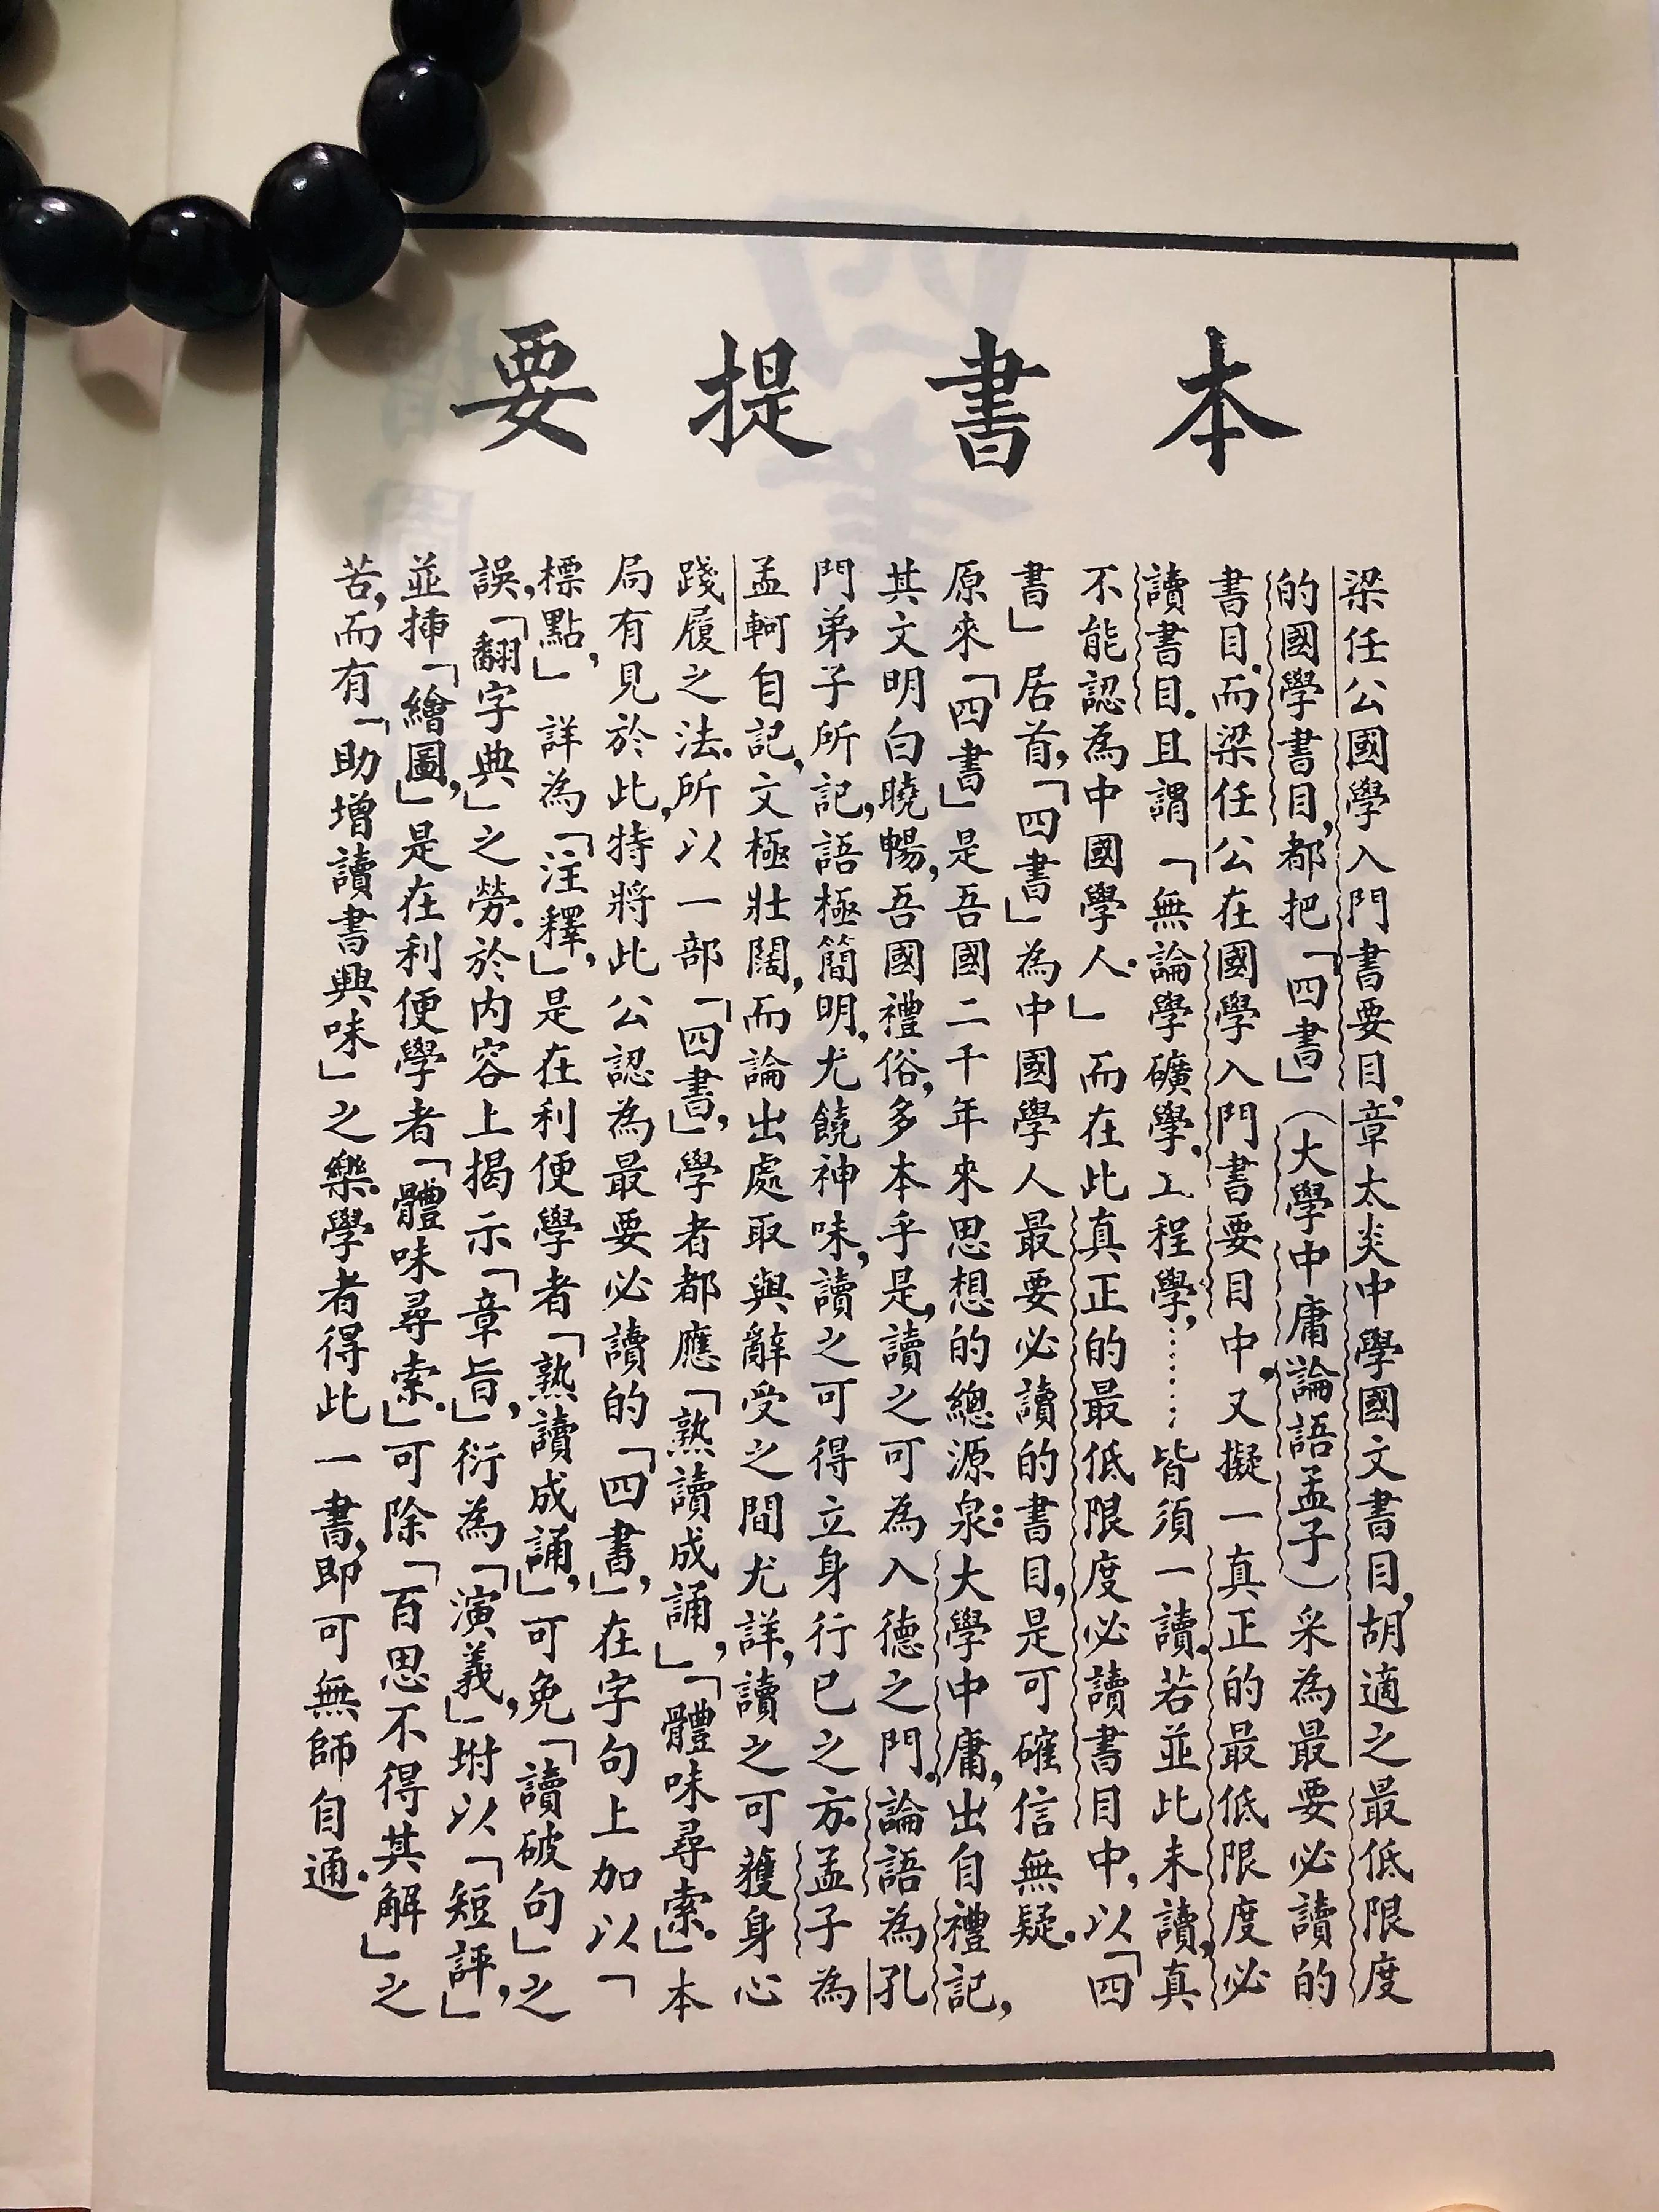 本書提要
梁任公國學入門書要目,章太炎中學國文書目,胡適之最低限度
的國學書目,都把「四書」(大學中庸論語孟子)采為最要必讀的
書目.而梁任公在國學入門書要目中,又擬一真正的最低限度必
讀書目.且謂「無論學礦學,工程學,……皆須一讀.若並此未讀,真
不能認為中國學人.」而在此真正的最低限度必讀書目中,以「四
書」居首,「四書」為中國學人最要必讀的書目,是可確信無疑.
原來「四書」是吾國二千年來思想的總源泉:大學中庸,出自禮記,
其文明白曉暢,吾國禮俗,多本乎是,讀之可為入德之門.論語為孔
門弟子所記,語極簡明,尤饒神味,讀之可得立身行己之方.孟子為
孟軻自記,文極壯闊,而論出處取與辭受之間尤詳,讀之可獲身心
踐履之法.所以一部「四書」,學者都應「熟讀成誦,」「體味尋索.」本
局有見於此,特將此公認為最要必讀的「四書」,在字句上加以「
標點,」詳為「注釋,」是在利便學者「熟讀成誦,」可免「讀破句」之
誤,「翻字典」之勞.於內容上揭示「章旨,」衍為「演義,」坿以「短評,」
並插「繪圖,」是在利便學者「體味尋索.」可除「百思不得其解」之
苦,而有「助增讀書興味」之樂.學者得此一書,即可無師自通.